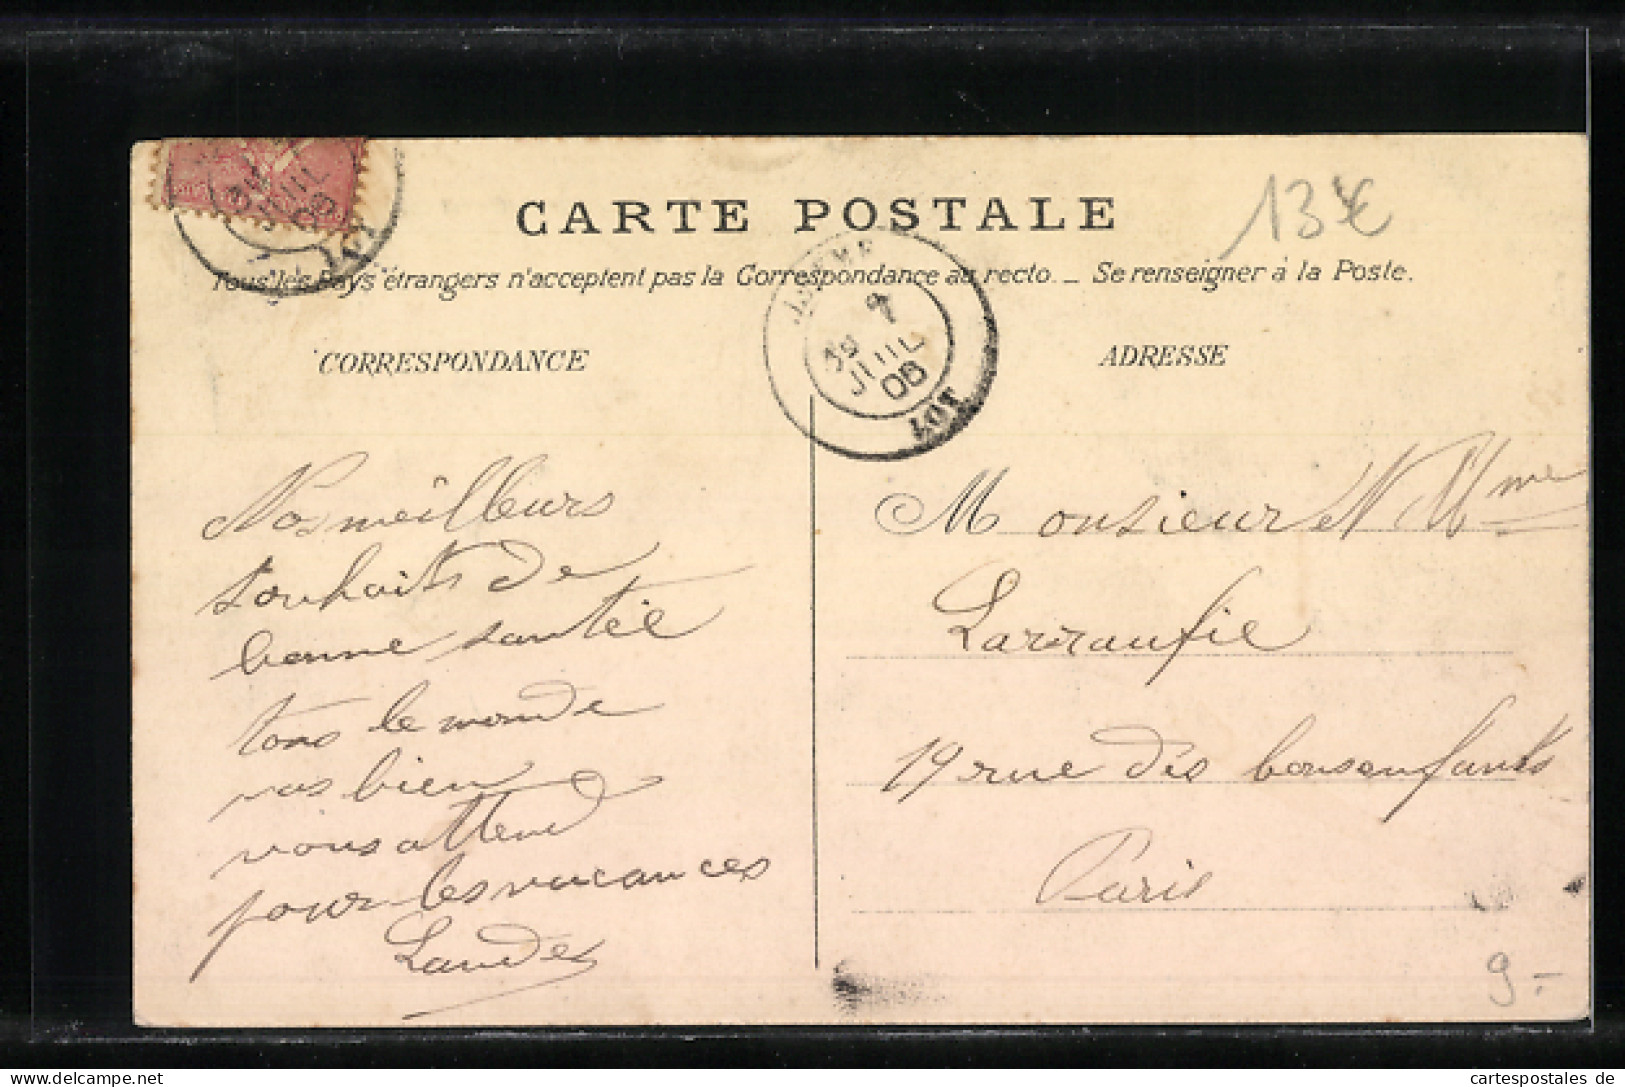 CARTE POSTALE
13 €
Tous les Pays étrangers n'acceptent pas la Correspondance au recto. _ Se renseigner à la Poste.
CORRESPONDANCE
ADRESSE
JUIL
06
LOT
JUIL
06
LOT
Nos meilleurs
souhaits de
bonne santée
tous le monde
vas bien
vous attend
pour les vacances
Landes
Monsieur et Mme
Larraufie
19 rue des bonsenfants
Paris
9.-
www.cartespostales.de
cartespostales de